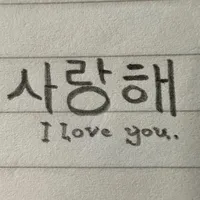 사랑해
I Love you..